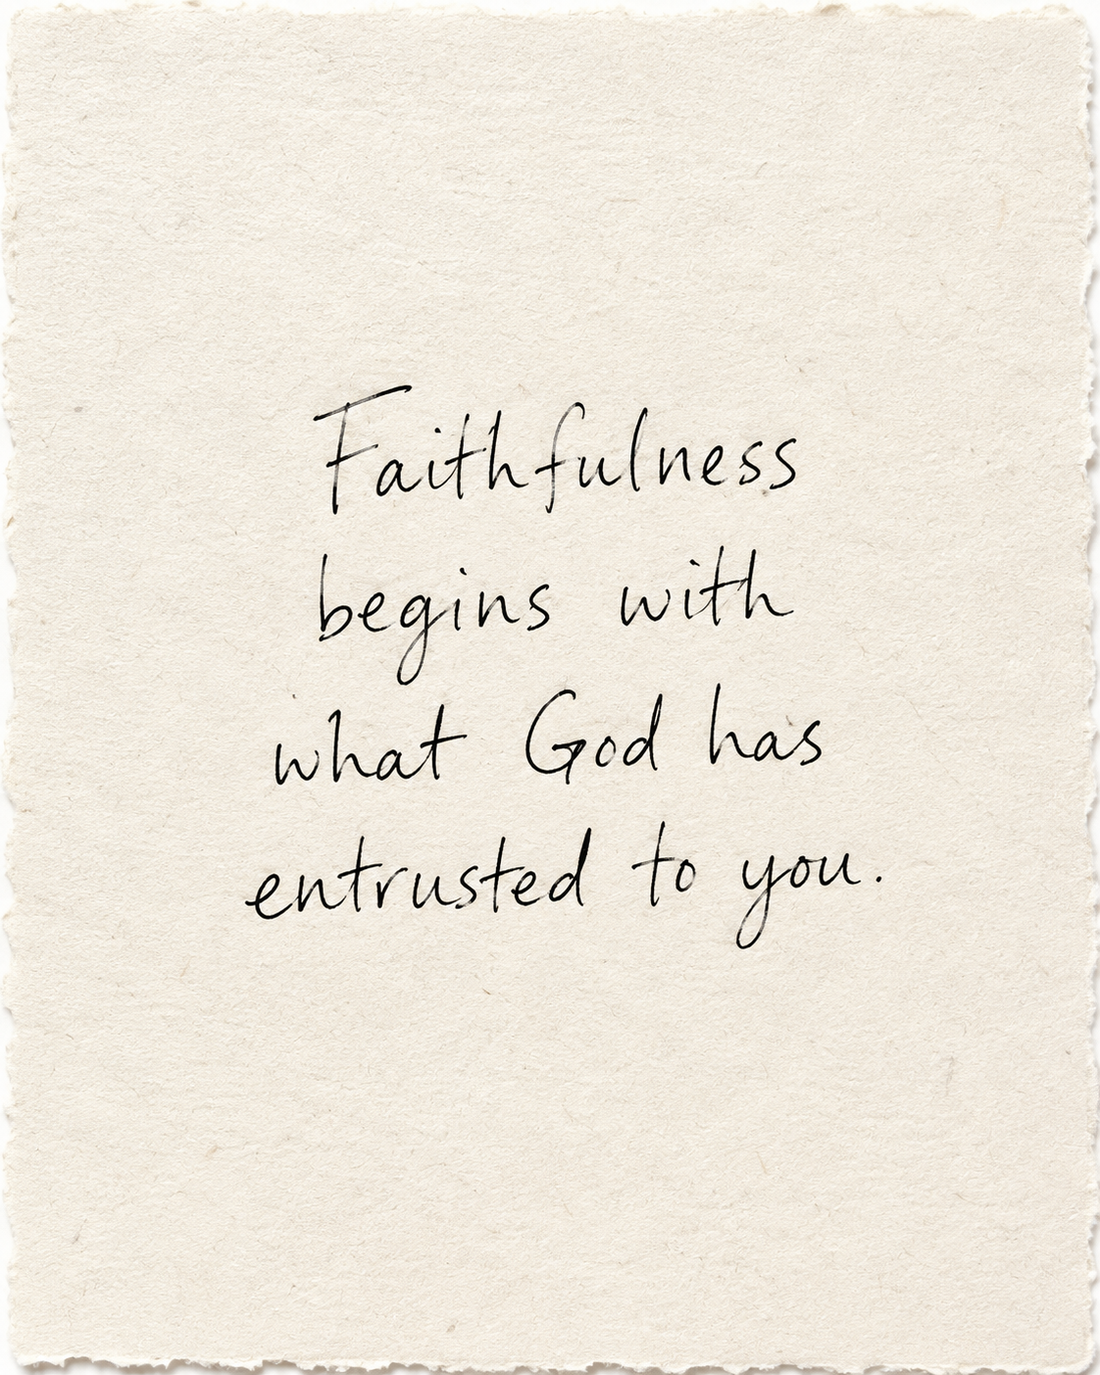 Faithfulness
begins with
what God has
entrusted to you.